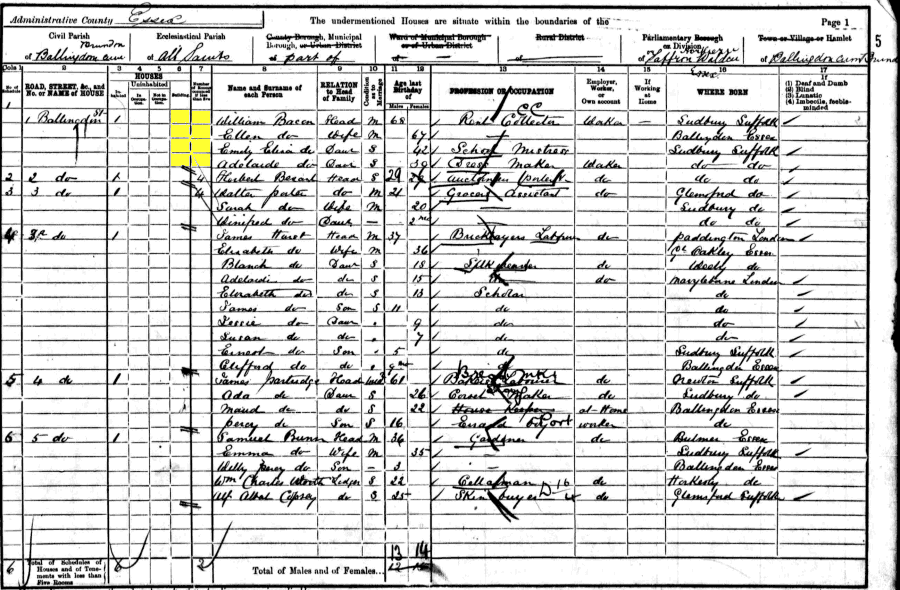 Administrative County Essex
The undermentioned Houses are situate within the boundaries of the
Page 1
5
Civil Parish
Ecclesiastical Parish
County Borough, Municipal Borough, or Urban District
Ward of Municipal Borough or of Urban District
Rural District
Parliamentary Borough or Division
Town or Village or Hamlet
of Ballingdon cum Brundon
of All Saints
part of
of Saffron Walden
of Ballingdon cum Brund
Cols 1 2 3 4 5 6 7 8 9 10 11 12 13 14 15 16 17
No. of Schedule
ROAD, STREET, &c., and No. or NAME of HOUSE
HOUSES
Inhabited
Uninhabited
In Occupation
Not in Occupation
Building
Name and Surname of each Person
RELATION to Head of Family
Condition as to Marriage
Age last Birthday of
Males
Females
PROFESSION OR OCCUPATION
Employer, Worker, or Own account
If Working at Home
WHERE BORN
If (1) Deaf and Dumb (2) Blind (3) Lunatic (4) Imbecile, feeble-minded
1 1 Ballingdon St 1 William Bacon Head M 68 Rent Collector Worker – Sudbury Suffolk
Ellen do Wife M 67 – Ballingdon Essex
Emily Eliza do Daur S 42 School Mistress Sudbury Suffolk
Adelaide do Daur S 39 Dress Maker Worker do do
2 2 do 1 4 Herbert Head S 29 Auctioneer porter do do do
3 3 do 4 Walter do M 21 Grocers Assistant do Glemsford do
Sarah do Wife M 20 – Sudbury do
Winifred do Daur – 2 mo do do
4 do 1 James Hurst Head M 37 Bricklayers Labourer do Paddington London
Elizabeth do Wife M 36 Oakley Essex
Blanch do Daur S 18 Silk weaver do do
Adelaide do do S 15 do do Marylebone London
Elizabeth do do S 13 Scholar do
James do Son S 11 do do
Jessie do Daur 9 do do
Susan do do 7 do do
Ernest do Son 5 Sudbury Suffolk
Clifford do do Ballingdon Essex
5 4 do 1 James Partridge Head 61 Labourer do Newton Suffolk
Ada do Daur S 26 Corset Maker do Sudbury do
Maud do do S 22 House Keeper at Home Ballingdon Essex
Percy do Son S 16 Errand worker do
6 5 do 1 Samuel Head M 36 Gardener do Bulmer Essex
Emma do Wife M 35 – Sudbury Suffolk
Percy do Son – 3 – Ballingdon Essex
Wm Charles S 22 16 do Horkesley do
Alf Albert S 25 4 do Glemsford Suffolk
13 14
6 Total of Schedules of Houses and of Tenements with less than Five Rooms 6 2 Total of Males and of Females... 12